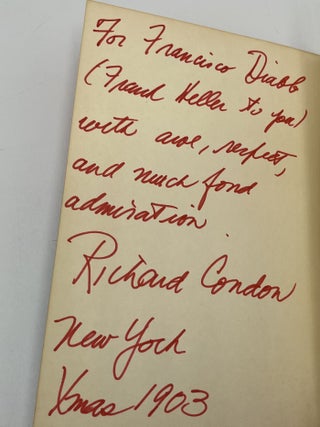 For Francisco Diabb
(Frank Heller to you)
with awe, respect,
and much fond
admiration.
Richard Condon
New York
Xmas 1903